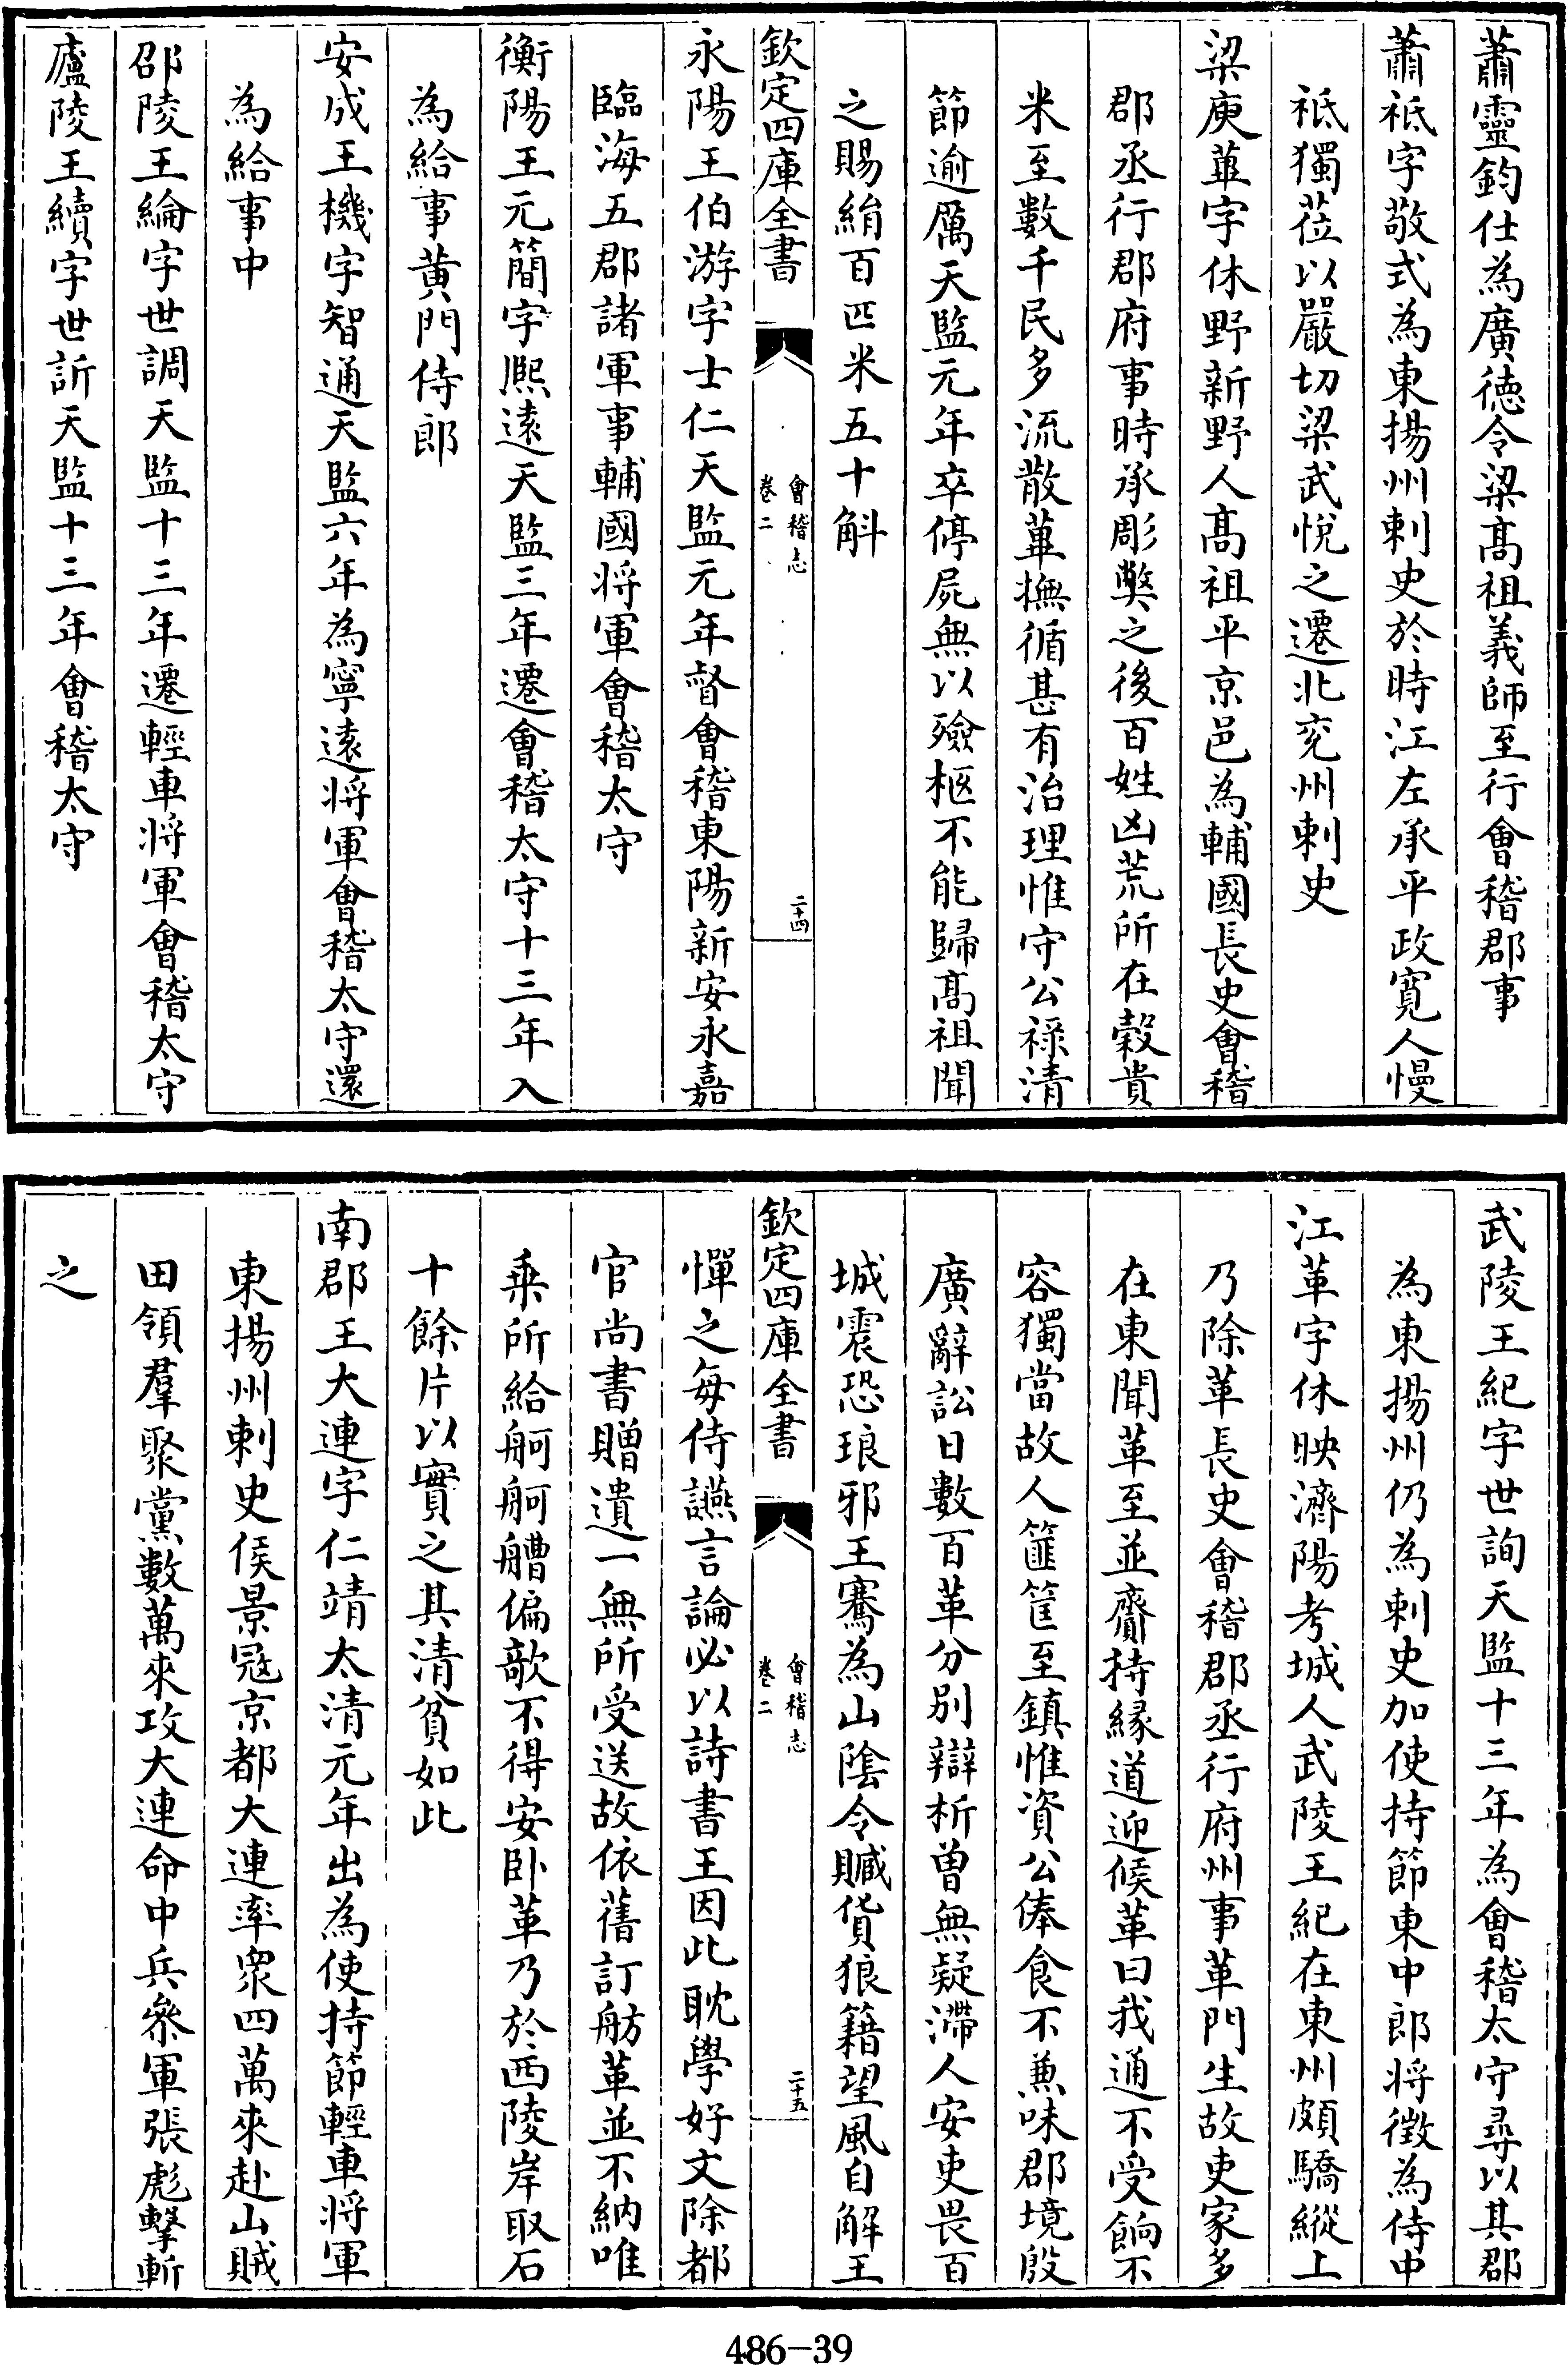 蕭靈鈞仕為廣徳令梁髙祖義師至行會稽郡事
蕭祗字敬式為東揚州刺史於時江左承平政寛人慢
祗獨莅以嚴切梁武悅之遷北兖州刺史
梁庾蓽字休野新野人髙祖平京邑為輔國長史會稽
郡丞行郡府事時承彫弊之後百姓凶荒所在榖貴
米至數千民多流散蓽撫循甚有治理惟守公禄清
節逾厲天監元年卒停屍無以殮柩不能歸髙祖聞
之賜絹百匹米五十斛
欽定四庫全書
會稽志
卷二
二十四
永陽王伯游字士仁天監元年督會稽東陽新安永嘉
臨海五郡諸軍事輔國将軍會稽太守
衡陽王元簡字熈遠天監三年遷會稽太守十三年入
為給事黄門侍郎
安成王機字智通天監六年為寧遠将軍會稽太守還
為給事中
邵陵王綸字世調天監十三年遷輕車将軍會稽太守
廬陵王續字世訢天監十三年會稽太守
武陵王紀字世詢天監十三年為會稽太守尋以其郡
為東揚州仍為刺史加使持節東中郎将徵為侍中
江革字休映濟陽考城人武陵王紀在東州頗驕縱上
乃除革長史會稽郡丞行府州事革門生故吏家多
在東聞革至並齎持縁道迎候革曰我通不受餉不
容獨當故人篚筐至鎮惟資公俸食不兼味郡境殷
廣辭訟日數百革分别辯析曽無疑滯人安吏畏百
城震恐琅邪王騫為山陰令贓貨狼籍望風自解王
欽定四庫全書
會稽志
卷二
二十五
憚之每侍讌言論必以詩書王因此耽學好文除都
官尚書贈遺一無所受送故依舊訂舫革並不納唯
乗所給舸舸艚偏欹不得安卧革乃於西陵岸取石
十餘片以實之其清貧如此
南郡王大連字仁靖太清元年出為使持節輕車将軍
東揚州刺史侯景宼京都大連率衆四萬來赴山賊
田領羣聚黨數萬來攻大連命中兵叅軍張彪擊斬
之
486-39